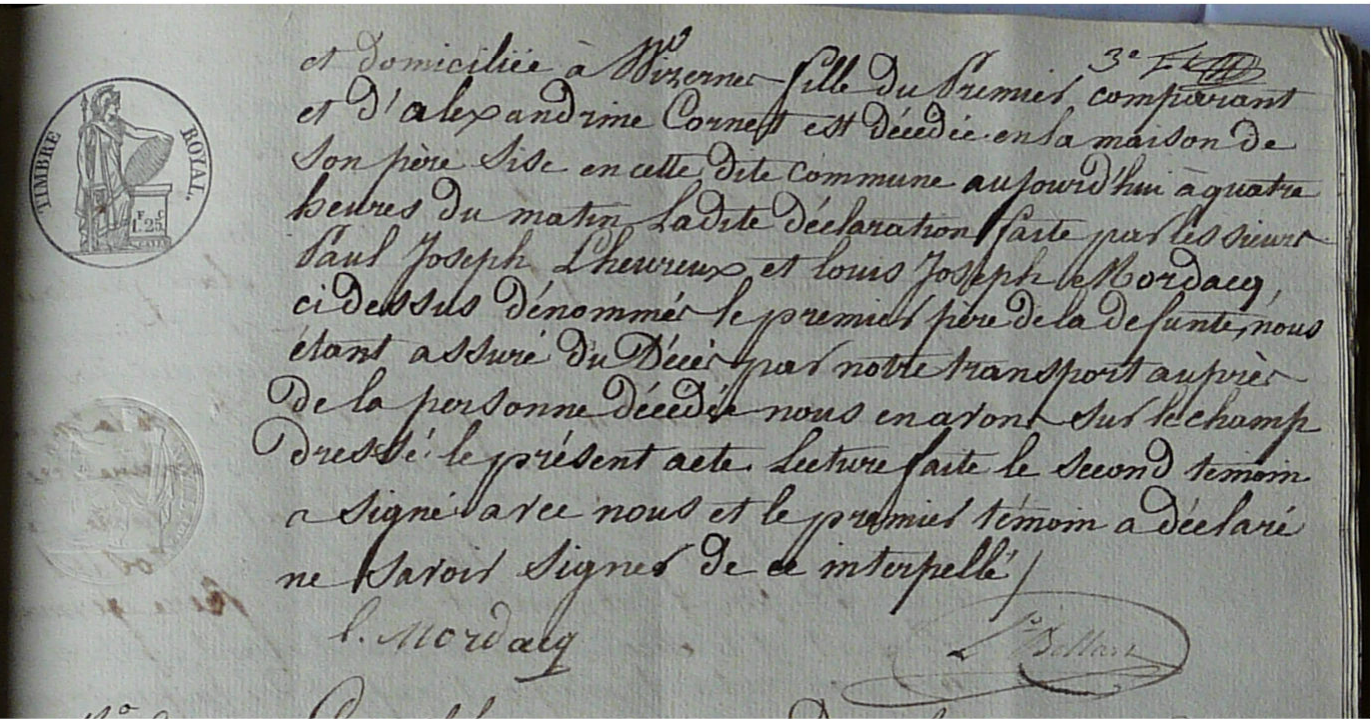 3e
et domiciliée à Wizernes fille du Premier comparant
et d'alexandrine Cornet est décédée en la maison de
son père sise en cette dite commune aujourd'hui à quatre
heures du matin Ladite déclaration faite par les sieurs
Paul Joseph Lheureux et louis Joseph Mordacq,
ci dessus dénommés le premier père de la defunte, nous
étant assuré du Décès par notre transport auprès
de la personne décédée nous en avons sur le champ
Dressé le présent acte. Lecture faite le second temoin
a signé avec nous et le premier témoin a déclaré
ne savoir signer de ce interpellé
l. Mordacq
TIMBRE ROYAL.
F C
1.25